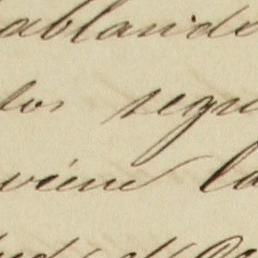 ablando
los segu
viene la